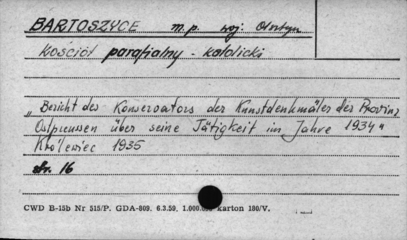 BARTOSZYCE m.p. woj. Olsztyn
kościół parafialny - katolicki
„Bericht des Konservators der Kunstdenkmäler der Provinz
Ostpreussen über seine Tätigkeit im Jahre 1934"
Królewiec 1935
str. 16
CWD B-15b Nr 515/P. GDA-809. 6.3.59. 1.000.000 karton 180/V.